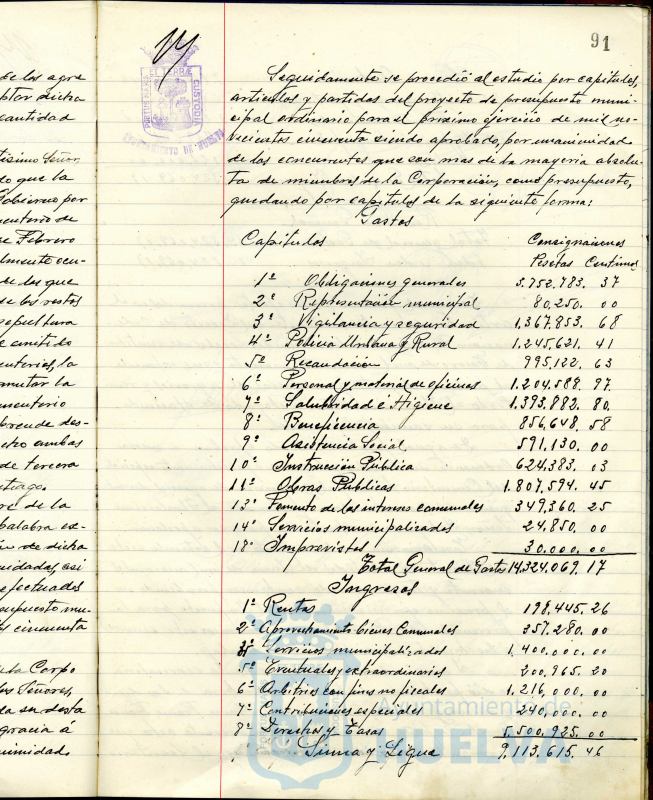 91
de los agre
cantidad
do que la
Gobierno por
menterio de
e Febrero
de los que
se los restos
sepultura
mutar la
menterio
ambas
de tercera
re de la
palabra ex-
de dicha
efectuados
cincuenta
Corpo
Señores,
gracia á
CUSTODIA
AYUNTAMIENTO DE HUELVA
Seguidamente se procedió al estudio por capitulos,
articulos y partidas del proyecto de presupuesto muni-
cipal ordinario para el próximo ejercicio de mil no-
vecientos cincuenta siendo aprobado, por unanimidad
de los concurrentes que son mas de la mayoria absolu-
ta de miembros de la Corporación, como presupuesto,
quedando por capitulos de la siguiente forma:
Gastos
Capitulos Consignaciones
Pesetas Centimos
1º Obligaciones generales 5.752.783. 37
2º Representación municipal 80.250. 00
3º Vigilancia y seguridad 1.367.853. 68
4º Policia Urbana y Rural 1.245.621. 41
5º Recaudación 995.122. 63
6º Personal y material de oficinas 1.204.589. 97.
7º Salubridad é Higiene 1.393.882. 80.
8º Beneficencia 856.648. 58
9º Asistencia Social 591.130. 00
10º Instrucción Pública 624.383. 03
11º Obras Públicas 1.807.594. 45
13º Fomento de los intereses comunales 349.360. 25
14º Servicios municipalizados 24.850. 00
18º Imprevistos 30.000. 00
Total General de Gastos 14.324.069. 17
Ingresos
1º Rentas 198.445. 26
2º Aprovechamiento bienes Comunales 357.280. 00
3º Servicios municipalizados 1.400.000. 00
5º Eventuales y extraordinarios 200.965. 20
6º Arbitrios con fines no fiscales 1.216.000. 00
7º Contribuciones especiales 240.000. 00
8º Derechos y Tasas 5.500.925. 00
Suma y Sigue 9.113.615. 46
Ayuntamiento de
HUELVA